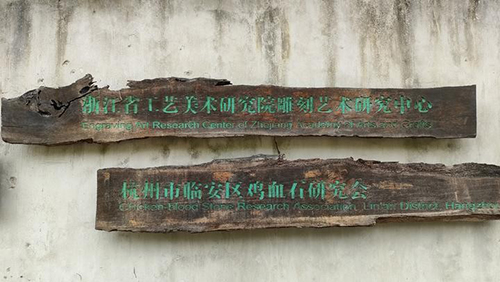 浙江省工艺美术研究院雕刻艺术研究中心
Engraving Art Research Center of Zhejiang Academy of Arts and Crafts
杭州市临安区鸡血石研究会
Chicken-Blood Stone Research Association, Lin'an District, Hangzhou